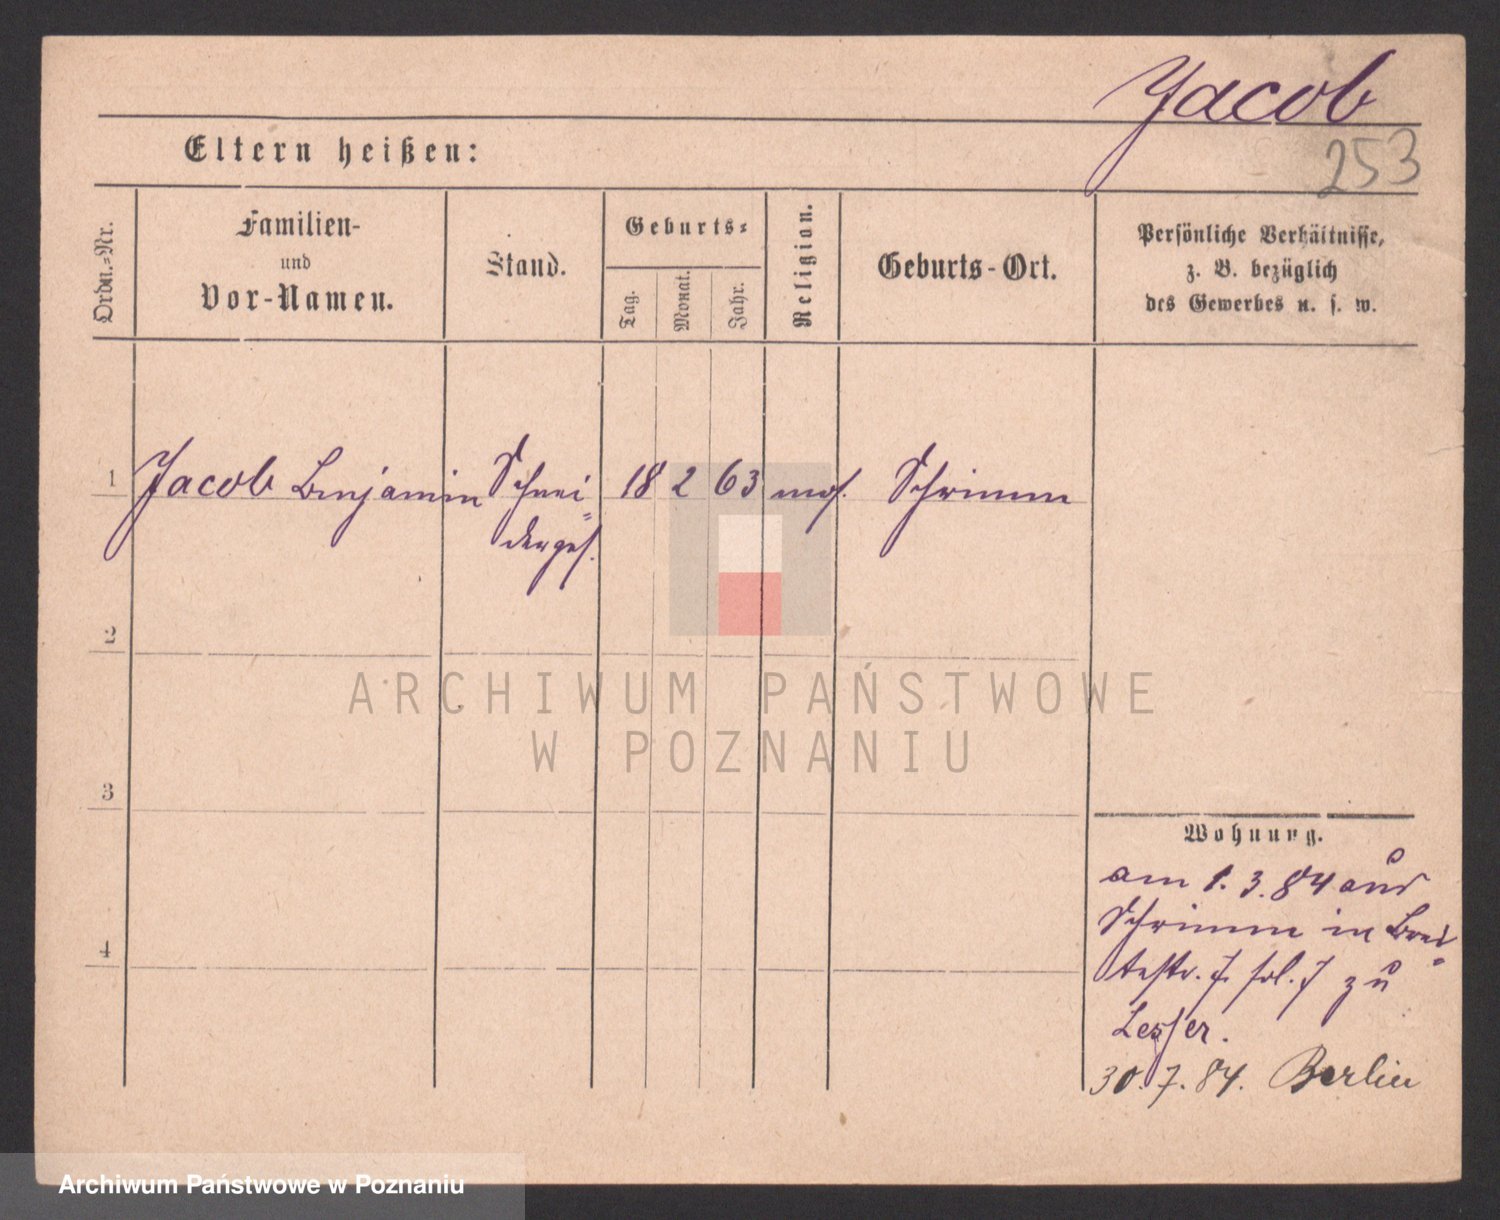 Jacob
253
Eltern heißen:
Ordn.-Nr.
Familien-
und
Vor-Namen.
Stand.
Geburts-
Tag.
Monat.
Jahr.
Religion.
Geburts-Ort.
Persönliche Verhältnisse,
z. B. bezüglich
des Gewerbes u. s. w.
1 Jacob Benjamin Schnei= 18 2 63 mos. Schrimm
derges.
2
3
4
ARCHIWUM PAŃSTWOWE
W POZNANIU
Wohnung.
am 1. 3. 84 aus
Schrimm in Brei=
testr. 7 zu
Lesser.
30. 7. 84. Berlin
Archiwum Państwowe w Poznaniu